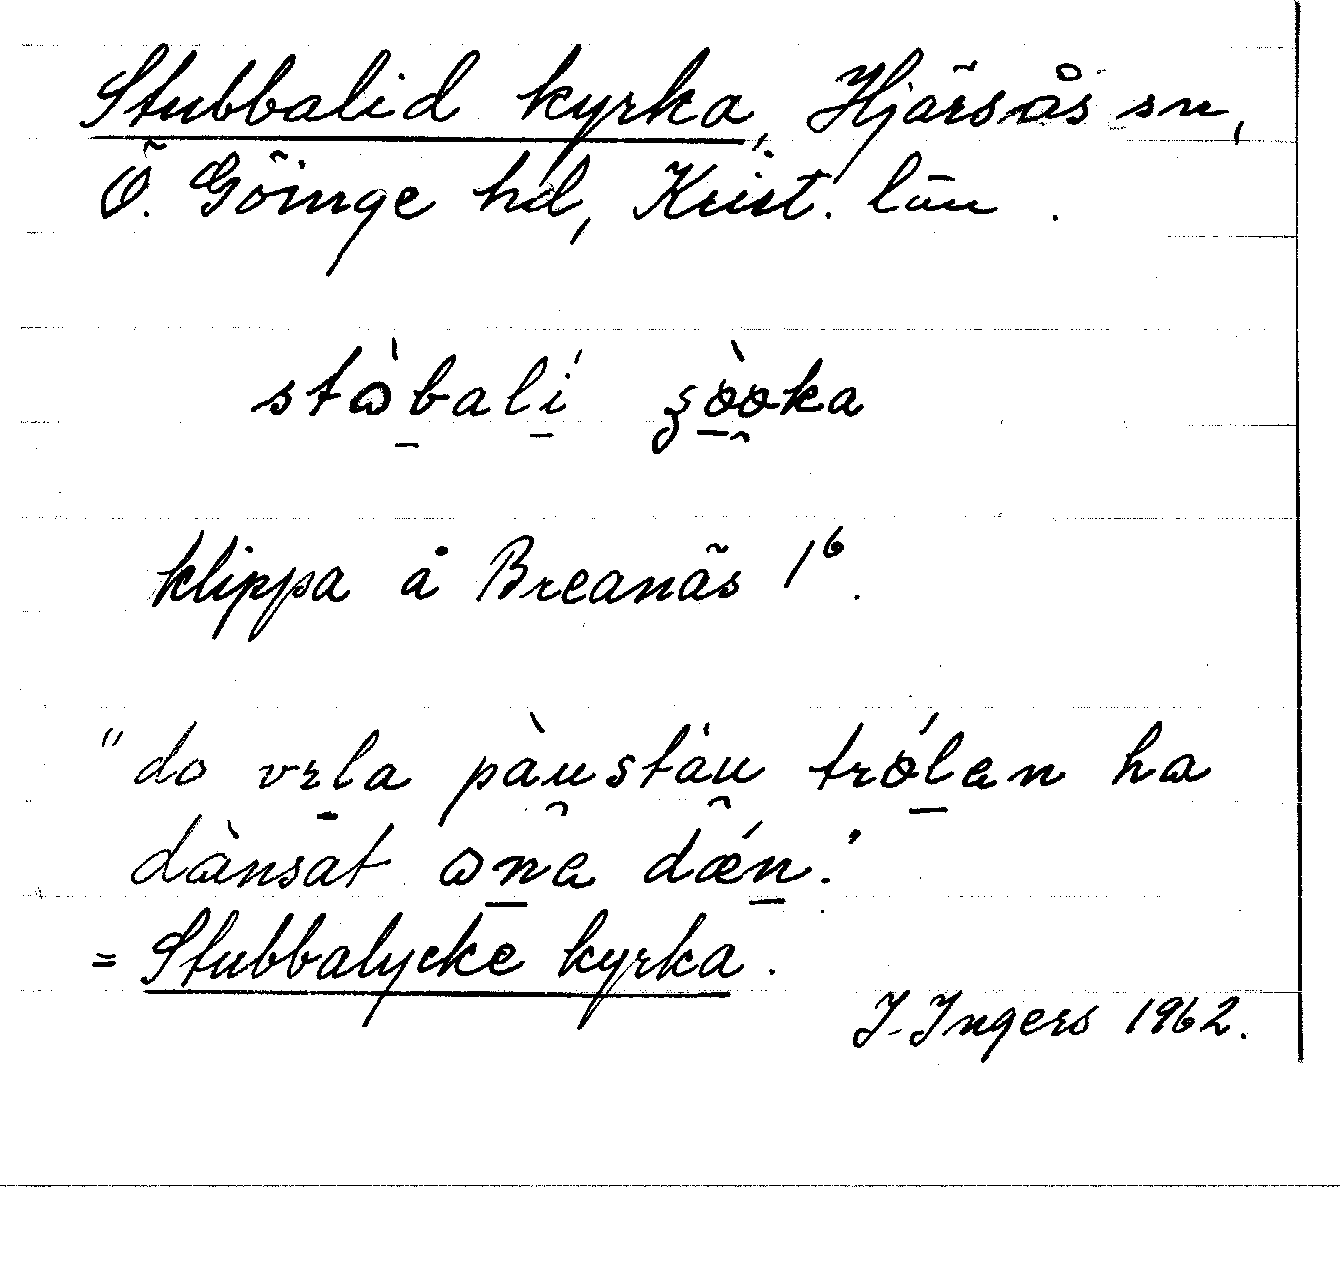 Stubbalid kyrka, Hjärsås sn,
Ö. Göinge hd, Krist. län.
stὼbalí ʒòoka
klippa å Breanäs 1⁶.
"do vɛla pàustàu trólan ha
dànsat ɷna dǽn."
= Stubbalycke kyrka.
I. Ingers 1962.